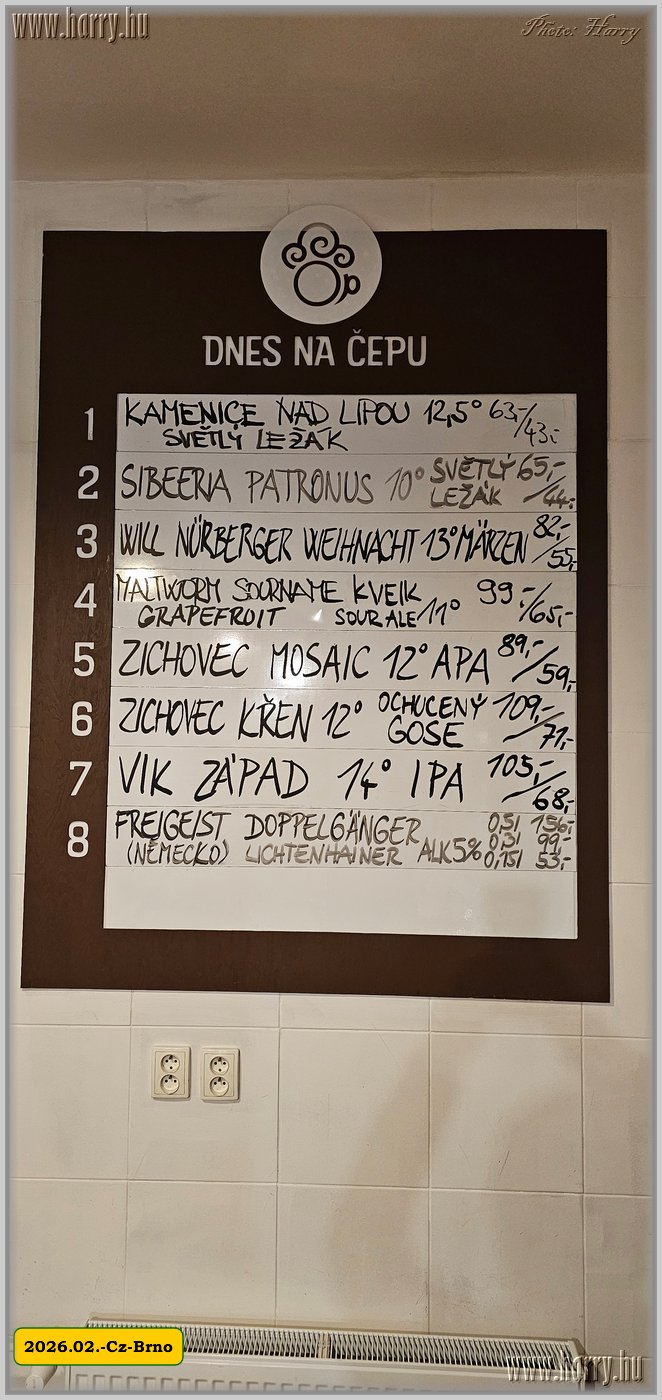 www.harry.hu
Photo: Harry
DNES NA ČEPU
1 KAMENICE NAD LIPOU 12,5° 63,-/43,-
SVĚTLÝ LEŽÁK
2 SIBEERIA PATRONUS 10° SVĚTLÝ LEŽÁK 65,-/44,-
3 WILL NÜRBERGER WEIHNACHT 13° MÄRZEN 82,-/55,-
4 MALTWORM SOURNAME KVEIK 99,-/65,-
GRAPEFROIT SOUR ALE 11°
5 ZICHOVEC MOSAIC 12° APA 89,-/59,-
6 ZICHOVEC KŘEN 12° OCHUCENÝ GOSE 109,-/71,-
7 VIK ZÁPAD 14° IPA 105,-/68,-
8 FREIGEIST DOPPELGÄNGER 0,5l 156,-
0,3l 99,-
(NĚMECKO) LICHTENHAINER ALK 5% 0,15l 53,-
2026.02.-Cz-Brno
www.harry.hu